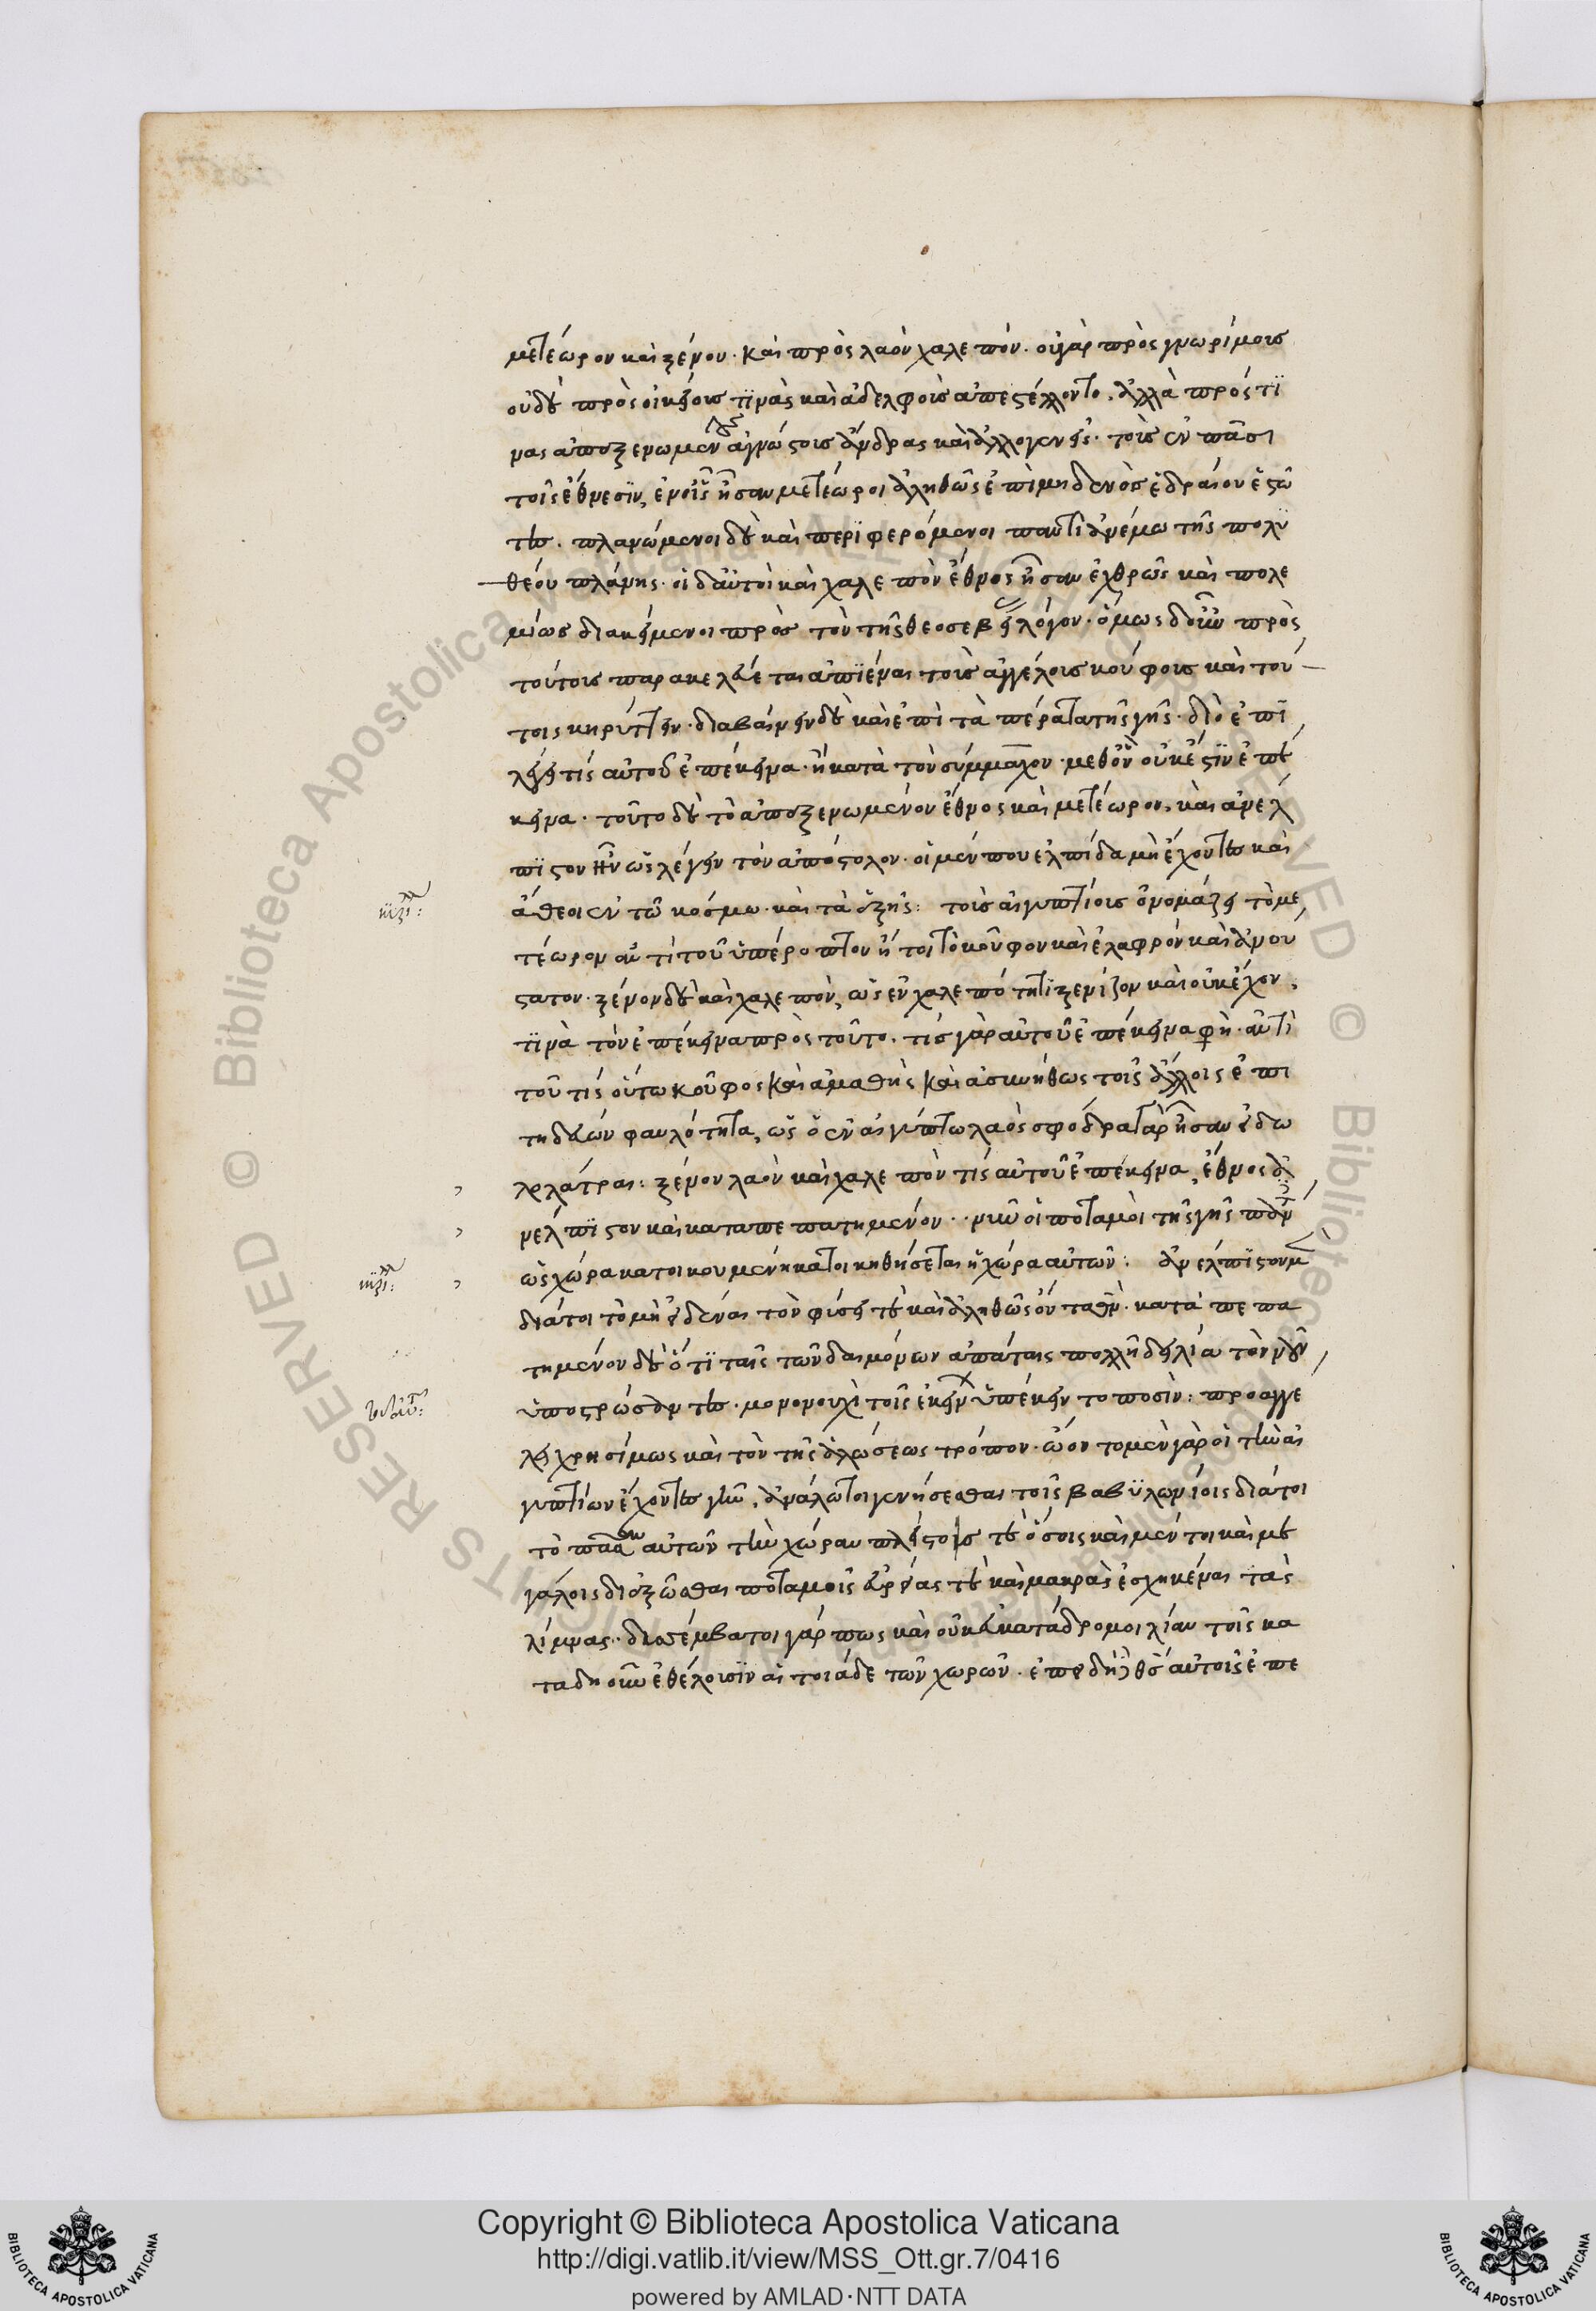 μετέωρον καὶ ξένον· καὶ πρὸς λαὸν χαλεπόν· οὐ γὰρ πρὸς γνωρίμους
οὐδὲ πρὸς οἰκείους τινὰς καὶ ἀδελφοὺς ἀπεστέλλοντο, ἀλλὰ πρός τι
νας ἀπεξενωμένους ἀγνώστους ἄνδρας καὶ ἀλλογενεῖς· τοῖς ἐν πᾶσι
τοῖς ἔθνεσιν, ἦσαν μετέωροι ἀληθῶς ἐπὶ μηδενὸς ἑδραίου ἑστῶ
τες· πλανώμενοι δὲ καὶ περιφερόμενοι παντὶ ἀνέμω τῆς πολυ
θέου πλάνης· οἱ δ' αὐτοὶ καὶ χαλεπὸν ἔθνος ἦσαν ἐχθρῶς καὶ πολε
μίως διακείμενοι πρὸς τὸν τῆς θεοσεβείας λόγον· ὅμως δ' οὖν πρὸς
τούτους παρακελεύεται ἀπιέναι τοὺς ἀγγέλους κούφους καὶ τού
τοις κηρύττειν· διαβαίνειν δὲ καὶ ἐπὶ τὰ πέρατα τῆς γῆς· διὸ ἐπι
λέγει τίς αὐτοῦ ἐπέκεινα· ἢ κατὰ τὸν σύμμαχον· μεθ' ὃν οὐκ ἔστιν ἐπέ
κεινα· τοῦτο δὲ τὸ ἀπεξενωμένον ἔθνος καὶ μετέωρον, καὶ ἀνέλ
πιστον ἦν ὡς λέγειν τὸν ἀπόστολον· οἱ μέν που ἐλπίδα μὴ ἔχοντες καὶ
ἄθεοι ἐν τῶ κόσμω· καὶ τὰ ἑξῆς: τοὺς αἰγυπτίους ὀνομάζει τὸ με
τέωρον ἀντὶ τοῦ ὑπέροπτον ἤτοι τὸ κοῦφον καὶ ἐλαφρὸν καὶ ἀνού
στατον· ξένον δὲ καὶ χαλεπόν, ὡς ἐν χαλεπότητι ξενίζον καὶ οὐκ ἔχον,
τινὰ τὸν ἐπέκεινα πρὸς τοῦτο· τίς γὰρ αὐτοῦ ἐπέκεινα φησὶ· ἀντὶ
τοῦ τίς οὕτω κοῦφος καὶ ἀμαθὴς καὶ ἀσυνήθως τοῖς ἄλλοις ἐπι
τηδεύων φαυλότητα, ὡς ὁ ἐν αἰγύπτω λαὸς σφόδρα γὰρ ἦσαν εἰδω
λολάτραι: ξένον λαὸν καὶ χαλεπὸν τίς αὐτοῦ ἐπέκεινα, ἔθνος ἀ
νέλπιστον καὶ καταπεπατημένον·· νῦν οἱ ποταμοὶ τῆς γῆς πάντες
ὡς χώρα κατοικουμένη κατοικηθήσεται ἡ χώρα αὐτῶν: ἀνέλπιστον μὲν
διάτοι τὸ μὴ εἰδέναι τὸν φύσει τε καὶ ἀληθῶς ὄντα θεόν· καταπεπα
τημένον δὲ ὅτι ταῖς τῶν δαιμόνων ἀπάταις πολλῆ δειλία τὸν νοῦν
ὑποστρώσαντες· μονονουχὶ τοῖς ἐκείνων ὑπέκειντο ποσίν: προαγγέ
λει χρησίμως καὶ τὸν τῆς ἁλώσεως τρόπον· ὤοντο μὲν γὰρ οἱ τὴν αἰ
γυπτίων ἔχοντες γῆν, ἀνάλωτοι γενήσεσθαι τοῖς βαβυλωνίοις διάτοι
τὸ πᾶσαν αὐτῶν τὴν χώραν πλείστοις τε ὅσοις καὶ μέντοι καὶ με
γάλοις διεζῶσθαι ποταμοῖς εὐρείας τε καὶ μακρὰς ἐσχηκέναι τὰς
λίμνας·· δυσέμβατοι γάρ πως καὶ οὐκ εὐκατάδρομοι λίαν τοῖς κα
ταδηοῦν ἐθέλουσιν αἱ τοιαίδε τῶν χωρῶν· ἐπειδὴ αὐτοῖς ἐπε
Copyright © Biblioteca Apostolica Vaticana
http://digi.vatlib.it/view/MSS_Ott.gr.7/0416
powered by AMLAD·NTT DATA
BIBLIOTECA APOSTOLICA VATICANA
BIBLIOTECA APOSTOLICA VATICANA